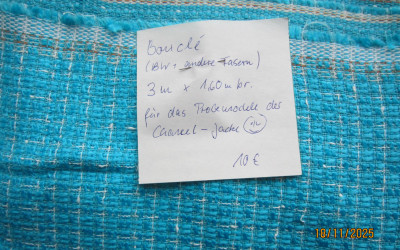 bouclé
(BW + andere Fasern)
3 m x 1,60 m br.
für das Probemodell der
Chanel - Jacke
10 €
10/11/2025